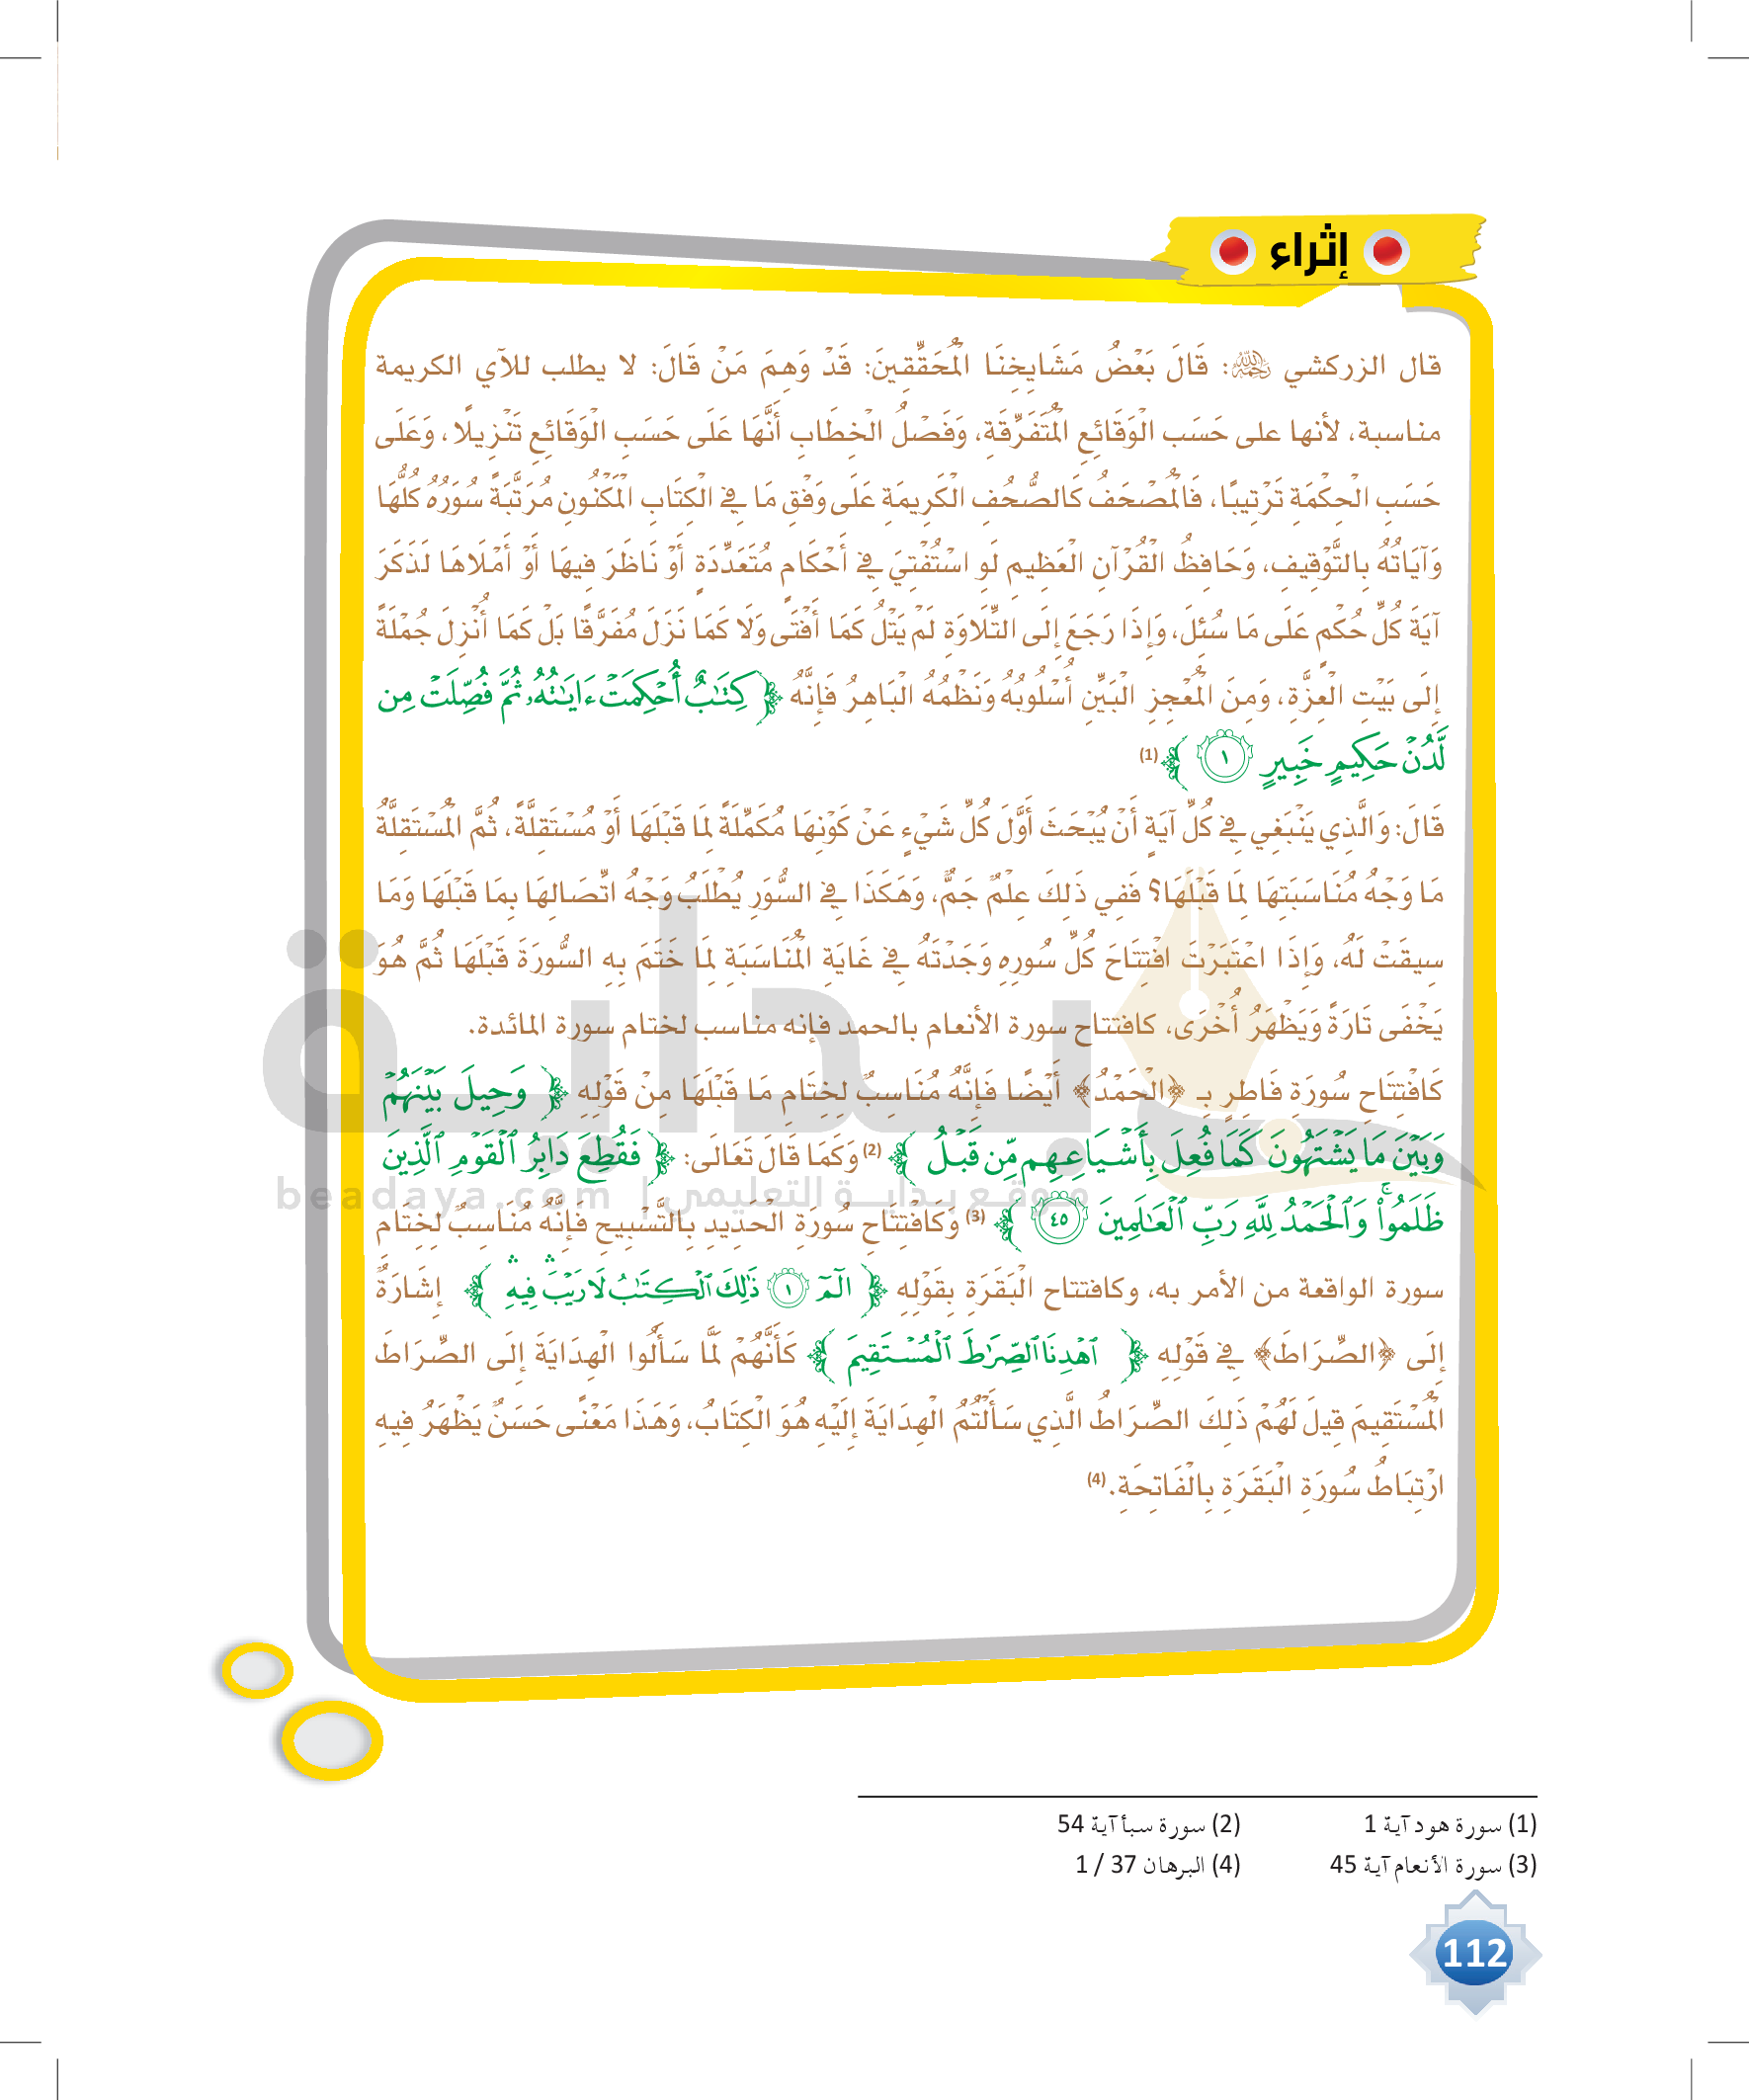 إثراء
قال الزركشي رحمه الله: قَالَ بَعْضُ مَشَايِخِنَا الْمُحَقِّقِينَ: قَدْ وَهِمَ مَنْ قَالَ: لا يطلب للآي الكريمة
مناسبة، لأنها على حَسَب الْوَقَائِعِ الْمُتَفَرِّقَةِ، وَفَصْلُ الْخِطَابِ أَنَّهَا عَلَى حَسَبِ الْوَقَائِعِ تَنْزِيلًا، وَعَلَى
حَسَبِ الْحِكْمَةِ تَرْتِيبًا، فَالْمُصْحَفُ كَالصُّحُفِ الْكَرِيمَةِ عَلَى وَفْقِ مَا فِي الْكِتَابِ الْمَكْنُونِ مُرَتَّبَةً سُوَرُهُ كُلُّهَا
وَآيَاتُهُ بِالتَّوْقِيفِ، وَحَافِظُ الْقُرْآنِ الْعَظِيمِ لَو اسْتُفْتِيَ فِي أَحْكَامٍ مُتَعَدِّدَةٍ أَوْ نَاظَرَ فِيهَا أَوْ أَمْلَاهَا لَذَكَرَ
آيَةَ كُلِّ حُكْمٍ عَلَى مَا سُئِلَ، وَإِذَا رَجَعَ إِلَى التِّلَاوَةِ لَمْ يَتْلُ كَمَا أَفْتَى وَلَا كَمَا نَزَلَ مُفَرَّقًا بَلْ كَمَا أُنْزِلَ جُمْلَةً
إِلَى بَيْتِ الْعِزَّةِ، وَمِنَ الْمُعْجِزِ الْبَيِّنِ أُسْلُوبُهُ وَنَظْمُهُ الْبَاهِرُ فَإِنَّهُ ﴿ كِتَٰبٌ أُحْكِمَتْ ءَايَٰتُهُۥ ثُمَّ فُصِّلَتْ مِن
لَّدُنْ حَكِيمٍ خَبِيرٍ ١ ﴾ (1)
قَالَ: وَالَّذِي يَنْبَغِي فِي كُلِّ آيَةٍ أَنْ يُبْحَثَ أَوَّلَ كُلِّ شَيْءٍ عَنْ كَوْنِهَا مُكَمِّلَةً لِمَا قَبْلَهَا أَوْ مُسْتَقِلَّةً، ثُمَّ الْمُسْتَقِلَّةُ
مَا وَجْهُ مُنَاسَبَتِهَا لِمَا قَبْلَهَا؟ فَفِي ذَلِكَ عِلْمٌ جَمٌّ، وَهَكَذَا فِي السُّوَرِ يُطْلَبُ وَجْهُ اتِّصَالِهَا بِمَا قَبْلَهَا وَمَا
سِيقَتْ لَهُ، وَإِذَا اعْتَبَرْتَ افْتِتَاحَ كُلِّ سُورِهِ وَجَدْتَهُ فِي غَايَةِ الْمُنَاسَبَةِ لِمَا خَتَمَ بِهِ السُّورَةَ قَبْلَهَا ثُمَّ هُوَ
يَخْفَى تَارَةً وَيَظْهَرُ أُخْرَى، كافتتاح سورة الأنعام بالحمد فإنه مناسب لختام سورة المائدة.
كَافْتِتَاحِ سُورَةِ فَاطِرٍ بِـ ﴿الْحَمْدُ﴾ أَيْضًا فَإِنَّهُ مُنَاسِبٌ لِخِتَامِ مَا قَبْلَهَا مِنْ قَوْلِهِ ﴿ وَحِيلَ بَيْنَهُمْ
وَبَيْنَ مَا يَشْتَهُونَ كَمَا فُعِلَ بِأَشْيَاعِهِم مِّن قَبْلُ ﴾ (2) وَكَمَا قَالَ تَعَالَى: ﴿ فَقُطِعَ دَابِرُ ٱلْقَوْمِ ٱلَّذِينَ
ظَلَمُوا۟ ۚ وَٱلْحَمْدُ لِلَّهِ رَبِّ ٱلْعَٰلَمِينَ ٤٥ ﴾ (3) وَكَافْتِتَاحِ سُورَةِ الْحَدِيدِ بِالتَّسْبِيحِ فَإِنَّهُ مُنَاسِبٌ لِخِتَامِ
سورة الواقعة من الأمر به، وكافتتاح الْبَقَرَةِ بِقَوْلِهِ ﴿ الٓمٓ ١ ذَٰلِكَ ٱلْكِتَٰبُ لَا رَيْبَ ۛ فِيهِ ۛ ﴾ إِشَارَةٌ
إِلَى ﴿الصِّرَاطَ﴾ فِي قَوْلِهِ ﴿ ٱهْدِنَا ٱلصِّرَٰطَ ٱلْمُسْتَقِيمَ ﴾ كَأَنَّهُمْ لَمَّا سَأَلُوا الْهِدَايَةَ إِلَى الصِّرَاطَ
الْمُسْتَقِيمَ قِيلَ لَهُمْ ذَلِكَ الصِّرَاطُ الَّذِي سَأَلْتُمُ الْهِدَايَةَ إِلَيْهِ هُوَ الْكِتَابُ، وَهَذَا مَعْنًى حَسَنٌ يَظْهَرُ فِيهِ
ارْتِبَاطُ سُورَةِ الْبَقَرَةِ بِالْفَاتِحَةِ.(4)
بداية
موقع بداية التعليمي | beadaya.com
(1) سورة هود آية 1
(2) سورة سبأ آية 54
(3) سورة الأنعام آية 45
(4) البرهان 37 / 1
112